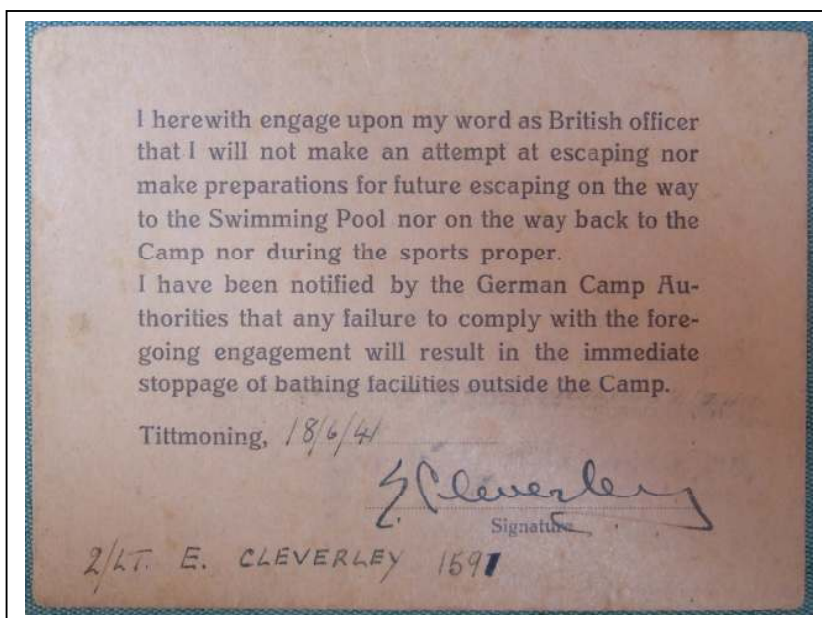 I herewith engage upon my word as British officer
that I will not make an attempt at escaping nor
make preparations for future escaping on the way
to the Swimming Pool nor on the way back to the
Camp nor during the sports proper.
I have been notified by the German Camp Au-
thorities that any failure to comply with the fore-
going engagement will result in the immediate
stoppage of bathing facilities outside the Camp.
Tittmoning, 18/6/41
E. Cleverley
Signature
2/LT. E. CLEVERLEY 1591